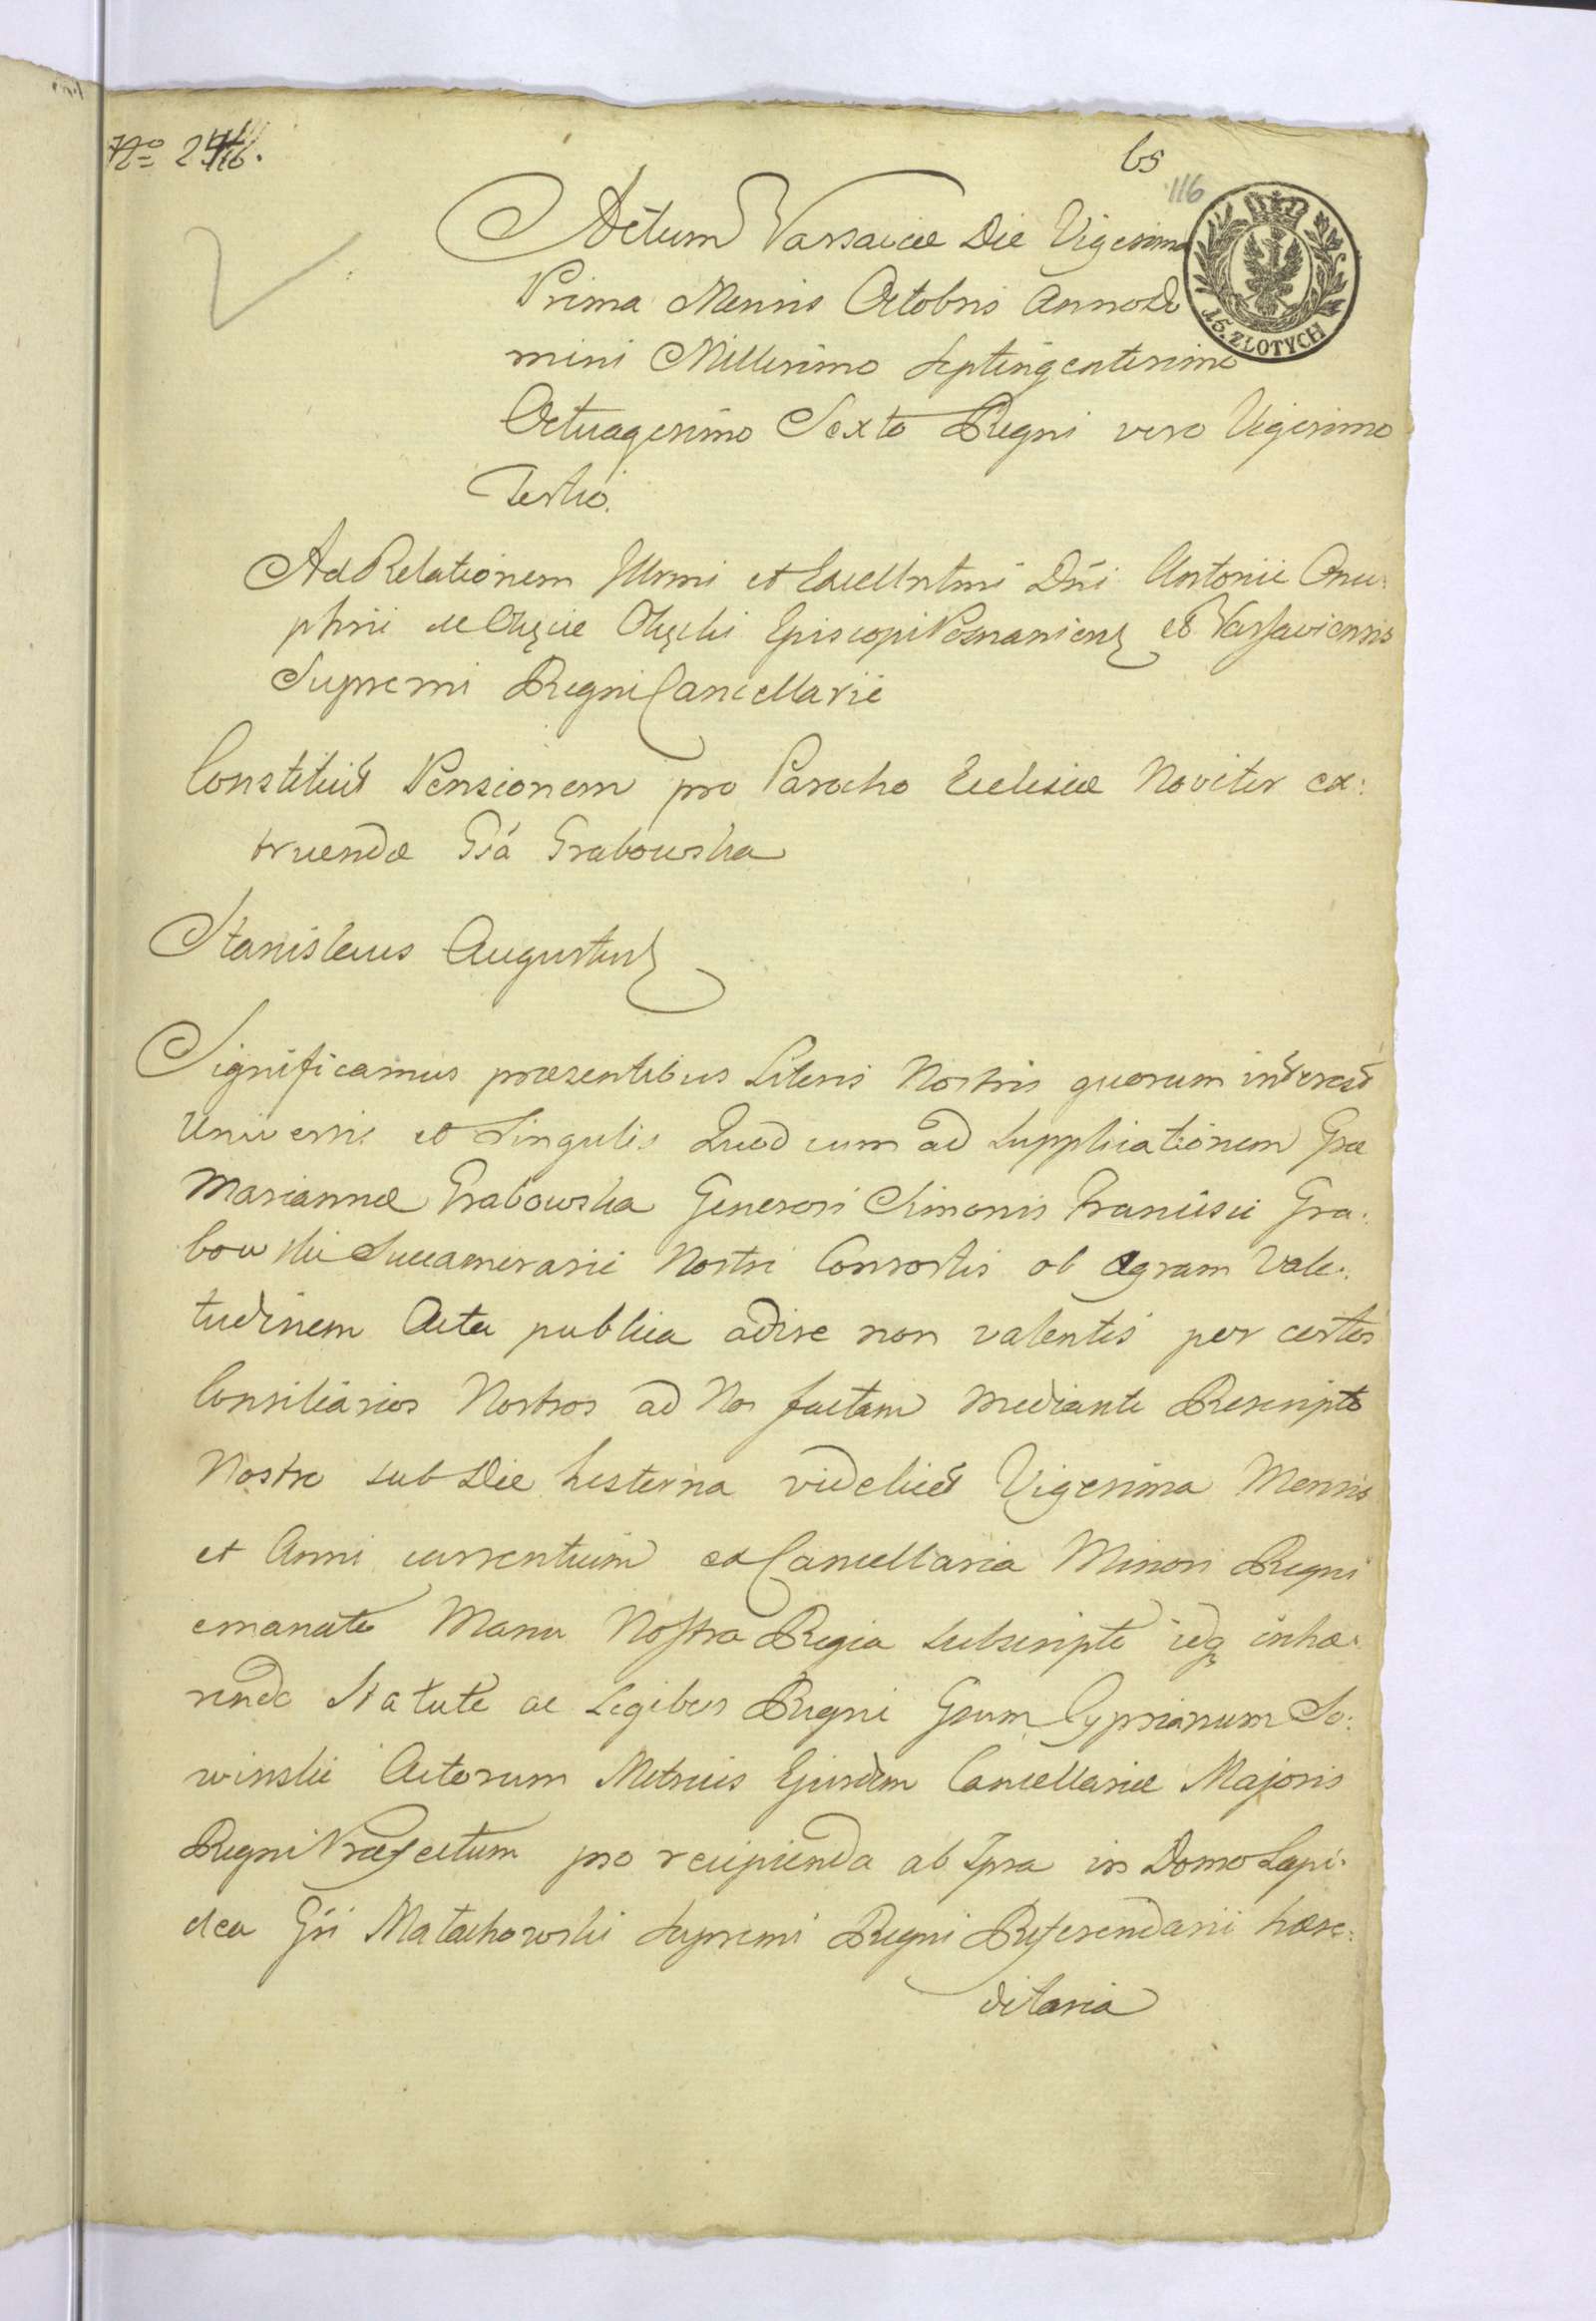 No 2446.
65
116
Actum Varsaviæ Die Vigesima
Prima Mensis Octobris Anno Do
mini Millesimo Septingentesimo
Octuagesimo Sexto Regni vero Vigesimo
Tertio.
15. ZŁOTYCH
Ad Relationem Illrmi et Excellntmi Dńi Antonii Onu:
phrii de Okęcie Okęcki Episcopi Posnaniens et Varsaviensis
Supremi Regni Cancellarii
Constituit Pensionem pro Parocho Ecclesiæ Noviter ex:
truendæ Gsa Grabowska
Stanislaus Augustus
Significamus præsentibus Literis Nostris quorum interest
Universis et Singulis. Quod cum ad Supplicationem Gsæ
Mariannæ Grabowska Generosi Simonis Francisci Gra:
bowski Succamerarii Nostri Consortis ob ægram Vale:
tudinem Acta publica adire non valentis per certos
Consiliarios Nostros ad Nos factam mediante Rescripto
Nostro sub Die hesterna videlicet Vigesima Mensis
et Anni currentium ex Cancellaria Minori Regni
emanato Manu Nostra Regia subscripto idq inhæ:
rendo Statuto ac Legibus Regni Gsum Cyprianum So:
winski Actorum Metrices Ejusdem Cancellariæ Majoris
Regni Præfectum pro recipienda ab Ipsa in Domo Lapi:
dea Gsi Małachowski Supremi Regni Referendarii hære:
ditaria